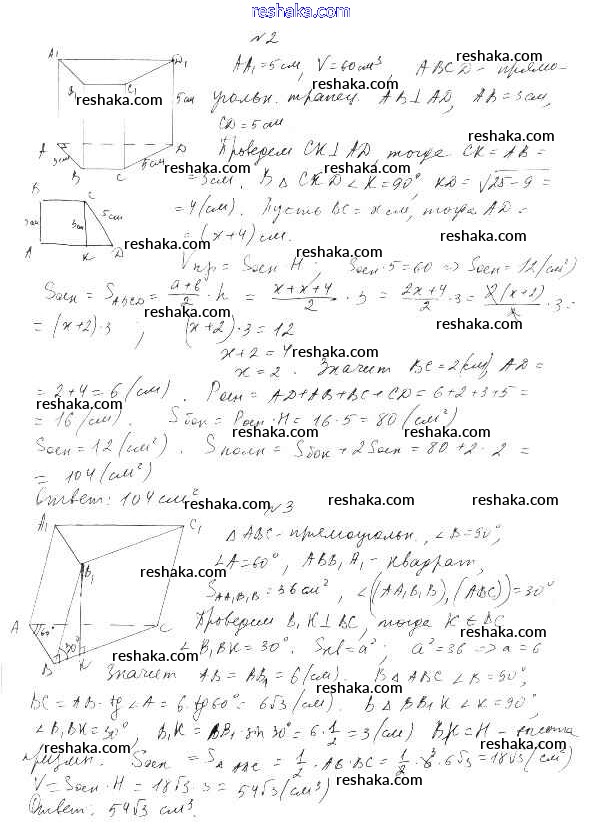 reshaka.com
№2
AA₁=5см, V=60см³, ABCD – прямо-
угольн. трапец. AB⊥AD, AB=3см,
CD=5см
Проведем CK⊥AD, тогда CK=AB=
=3см. В △CKD ∠K=90°, KD=√25-9=
=4(см). Пусть BC=x см, тогда AD=
=(x+4) см.
Vпр=Sосн·H ; Sосн·5=60 => Sосн=12(см²)
Sосн=S_ABCD= (a+b)/2 · h = (x+x+4)/2 · 3 = (2x+4)/2 · 3 = 2(x+2)/2 · 3 =
=(x+2)·3 ; (x+2)·3=12
x+2=4
x=2. Значит BC=2(см), AD=
=2+4=6(см). Pосн=AD+AB+BC+CD=6+2+3+5=
=16(см). Sбок=Pосн·H=16·5=80(см²)
Sосн=12(см²). Sполн=Sбок+2Sосн=80+2· 2=
=104(см²)
Ответ: 104см²
№3
△ABC-прямоугольн., ∠B=90°,
∠A=60°, ABB₁A₁-квадрат,
S_AA₁B₁B=36см², ∠((AA₁B₁B),(ABC))=30°
Проведем B₁K⊥BC, тогда K∈BC
∠B₁BK=30°. Sкв=a²; a²=36 => a=6
Значит AB=BB₁=6(см). В △ABC ∠B=90°,
BC=AB·tg∠A=6·tg60°=6√3(см). В △BB₁K ∠K=90°,
∠B₁BK=30°, B₁K=BB₁·sin30°=6·1/2=3(см) B₁K=H – высота
призм. Sосн=S_△ABC=1/2·AB·BC=1/2·6·6√3=18√3(см²)
V=Sосн·H=18√3·3=54√3(см³)
Ответ: 54√3 см³.
A₁ D₁
B₁ C₁
5см
A D
3см
B C 5см
B C
3см 3см 5см
A K D
A₁ C₁
B₁
A 60° C
30°
B K
reshaka.com